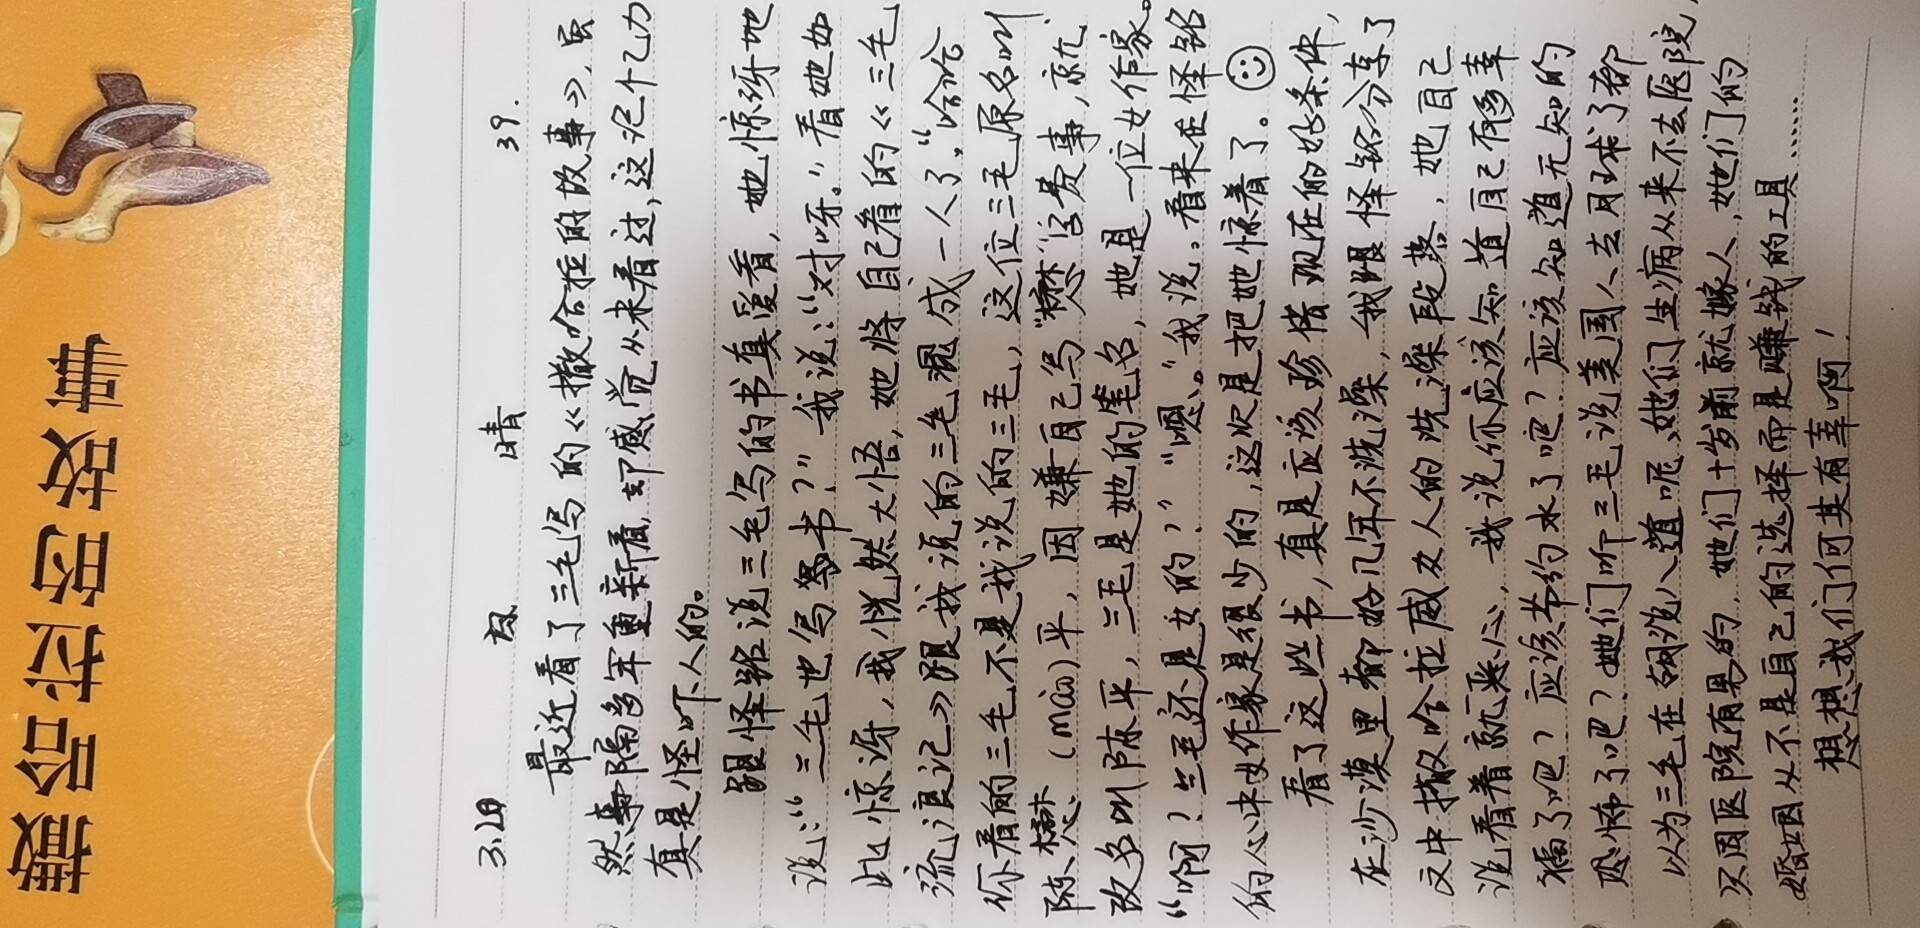 撒哈拉的故事
3.2日 晴 39.
最近看了三毛写的《撒哈拉的故事》，虽
然事隔多年重新看，却感觉从未看过，这记忆力
真是怪吓人的。
跟怪铭说三毛写的书真爱看，她惊讶地
说：“三毛也写书？”我说：“对呀。”看她如
此惊讶，我恍然大悟，她将自己看的《三毛
流浪记》跟我说的三毛混成一人了。“哈哈
你看的三毛不是我说的三毛，这位三毛原名叫
陈懋（mào）平，因嫌自己写“懋”字费事，就
改名叫陈平，三毛是她的笔名，她是一位女作家。
“啊？三毛还是女的？”“嗯。”我说。看来在怪铭
的心中女作家是很少的，这次是把她惊着了。
看了这些书，真是应该珍惜现在的好条件，
在沙漠里都好几年不洗澡，我跟怪铭分享了
文中撒哈拉威女人的洗澡段落，她自己
说看着就恶心，我说你应该知道自己有多幸
福了吧？应该节约水了吧？应该知道无知的
恐怖了吧？她们听三毛说美国人去月球了都
以为三毛在胡说八道呢，她们生病从来不去医院，
只因医院有男的，她们十岁前就嫁人，她们的
婚姻从不是自己的选择而是赚钱的工具……
想想我们何其有幸啊！